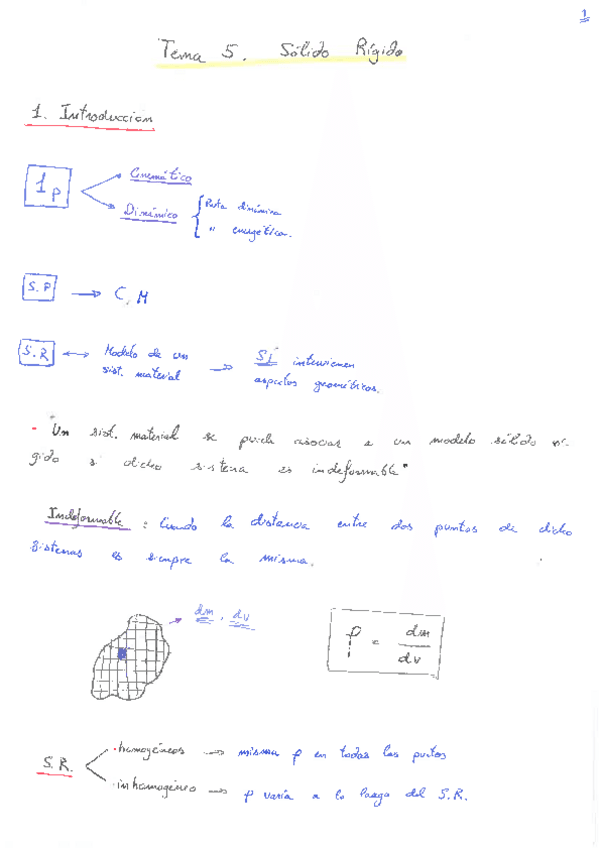 1
Tema 5. Sólido Rígido
1. Introduccion
1p
Cinemático
Dinámico { Parte dinámica
" energética.
S.P → C, M
S.R ↔ Modelo de un sist. material → SÍ intervienen aspectos geométricos.
- Un sist. material se puede asociar a un modelo sólido rí-
gido si dicho sistema es indeformable"
Indeformable : Cuando la distancia entre dos puntos de dicho
sistemas es siempre la misma.
dm, dv
ρ = dm/dv
S.R.
· homogéneos → misma ρ en todos los puntos
· inhomogéneo → ρ varía a lo largo del S.R.